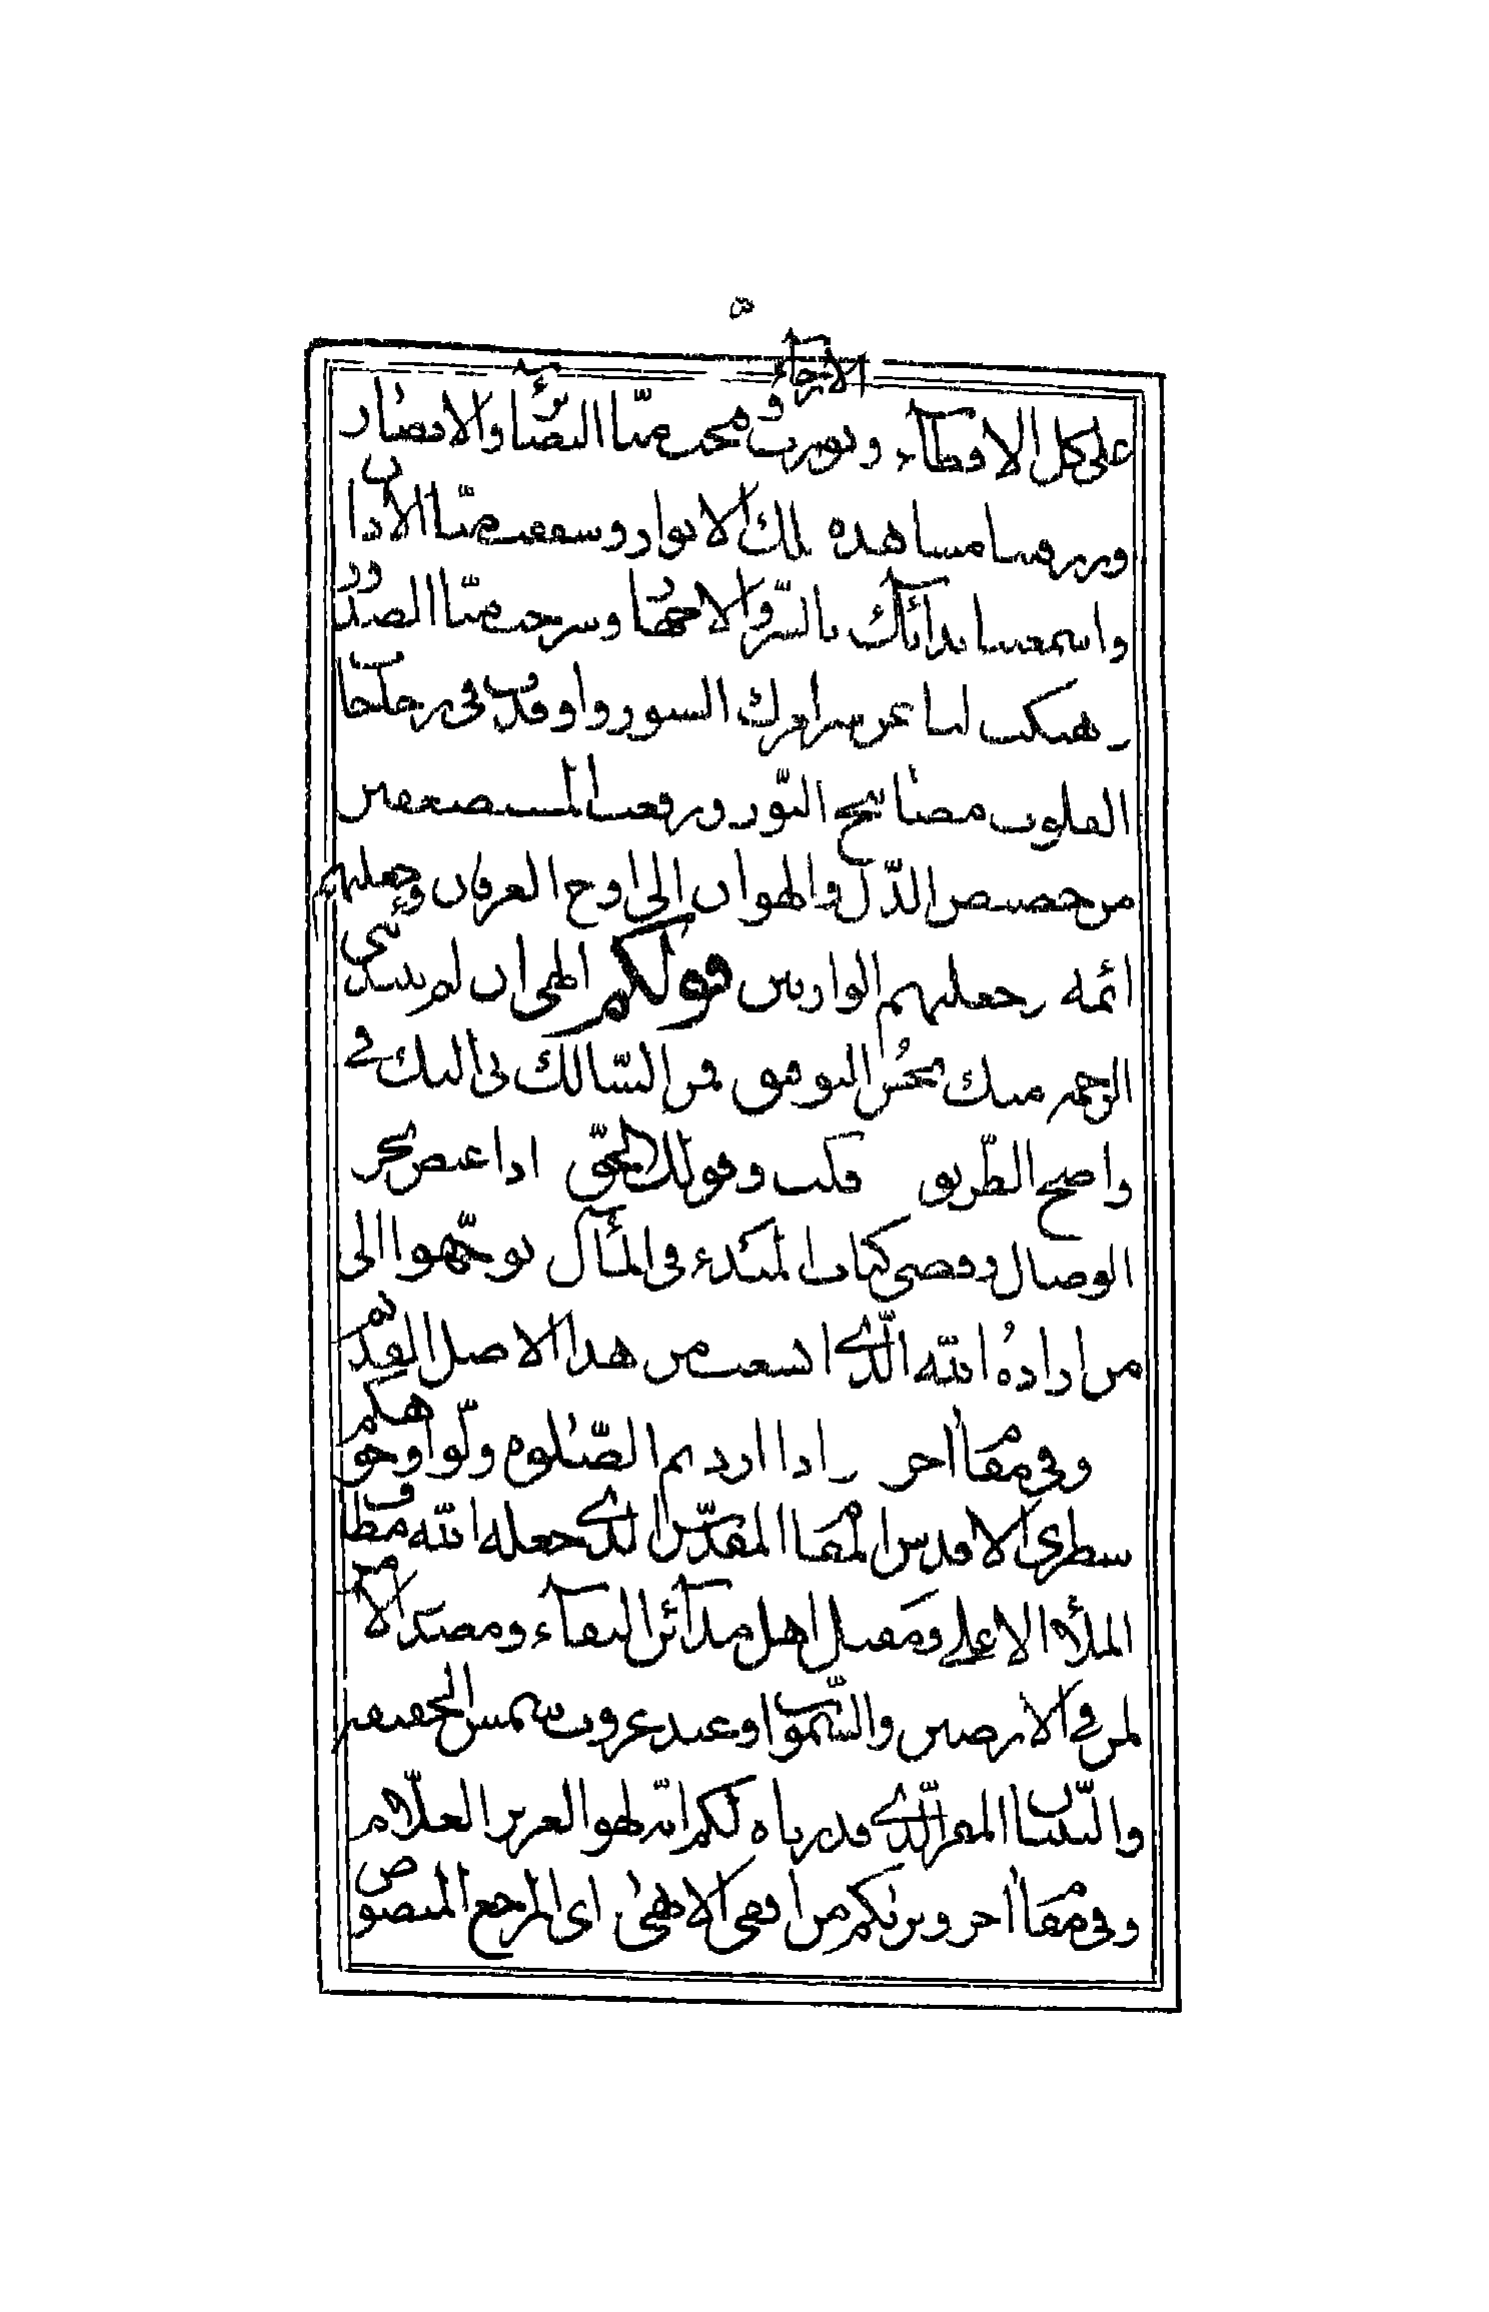 ٥
على كل الاقطار والارجآء ونورت ومحت منّا البصائر والابصار
ورزقتنا مشاهدة تلك الانوار وسمعت منّا الاذان
واسمعتنا ندآئك بالسّر والاجهار وشرحت منّا الصدور
بهتكك لنا عن سرائرك الستور واوقدت فى زجاجات
القلوب مصابيح النّور ورفعت المستضعفين
من حضيض الذّل والهوان الى اوج العرفان وجعلتهم
ائمة وجعلتهم الوارثين قولكم الهى ان لم تبتدئنى
الرحمة منك بحُسن التوفيق فمن السّالك بى اليك فى
واضح الطّريق فكيف وقولك الحقّ اذا غيض بحر
الوصال وقضى كتاب المبدء فى المآل توجّهوا الى
من اراده الله الّذى انشعب من هذا الاصل القديم
وفى مقام اخر اذا اردتم الصّلوة ولّوا وجوهكم
شطرى الاقدس المقام المقدّس الّذى جعله الله مطاف
الملأ الاعلى ومقبل اهل مدآئن البقآء ومصدر الامر
لمن فى الارضين والسّموات وعند غروب شمس الحقيقة
والتّبيان المقر الّذى قدرناه لكم انّه لهو العزيز العلّام
وفى مقام اخر ونريكم من افقى الابهى اى المرجع المنصوص